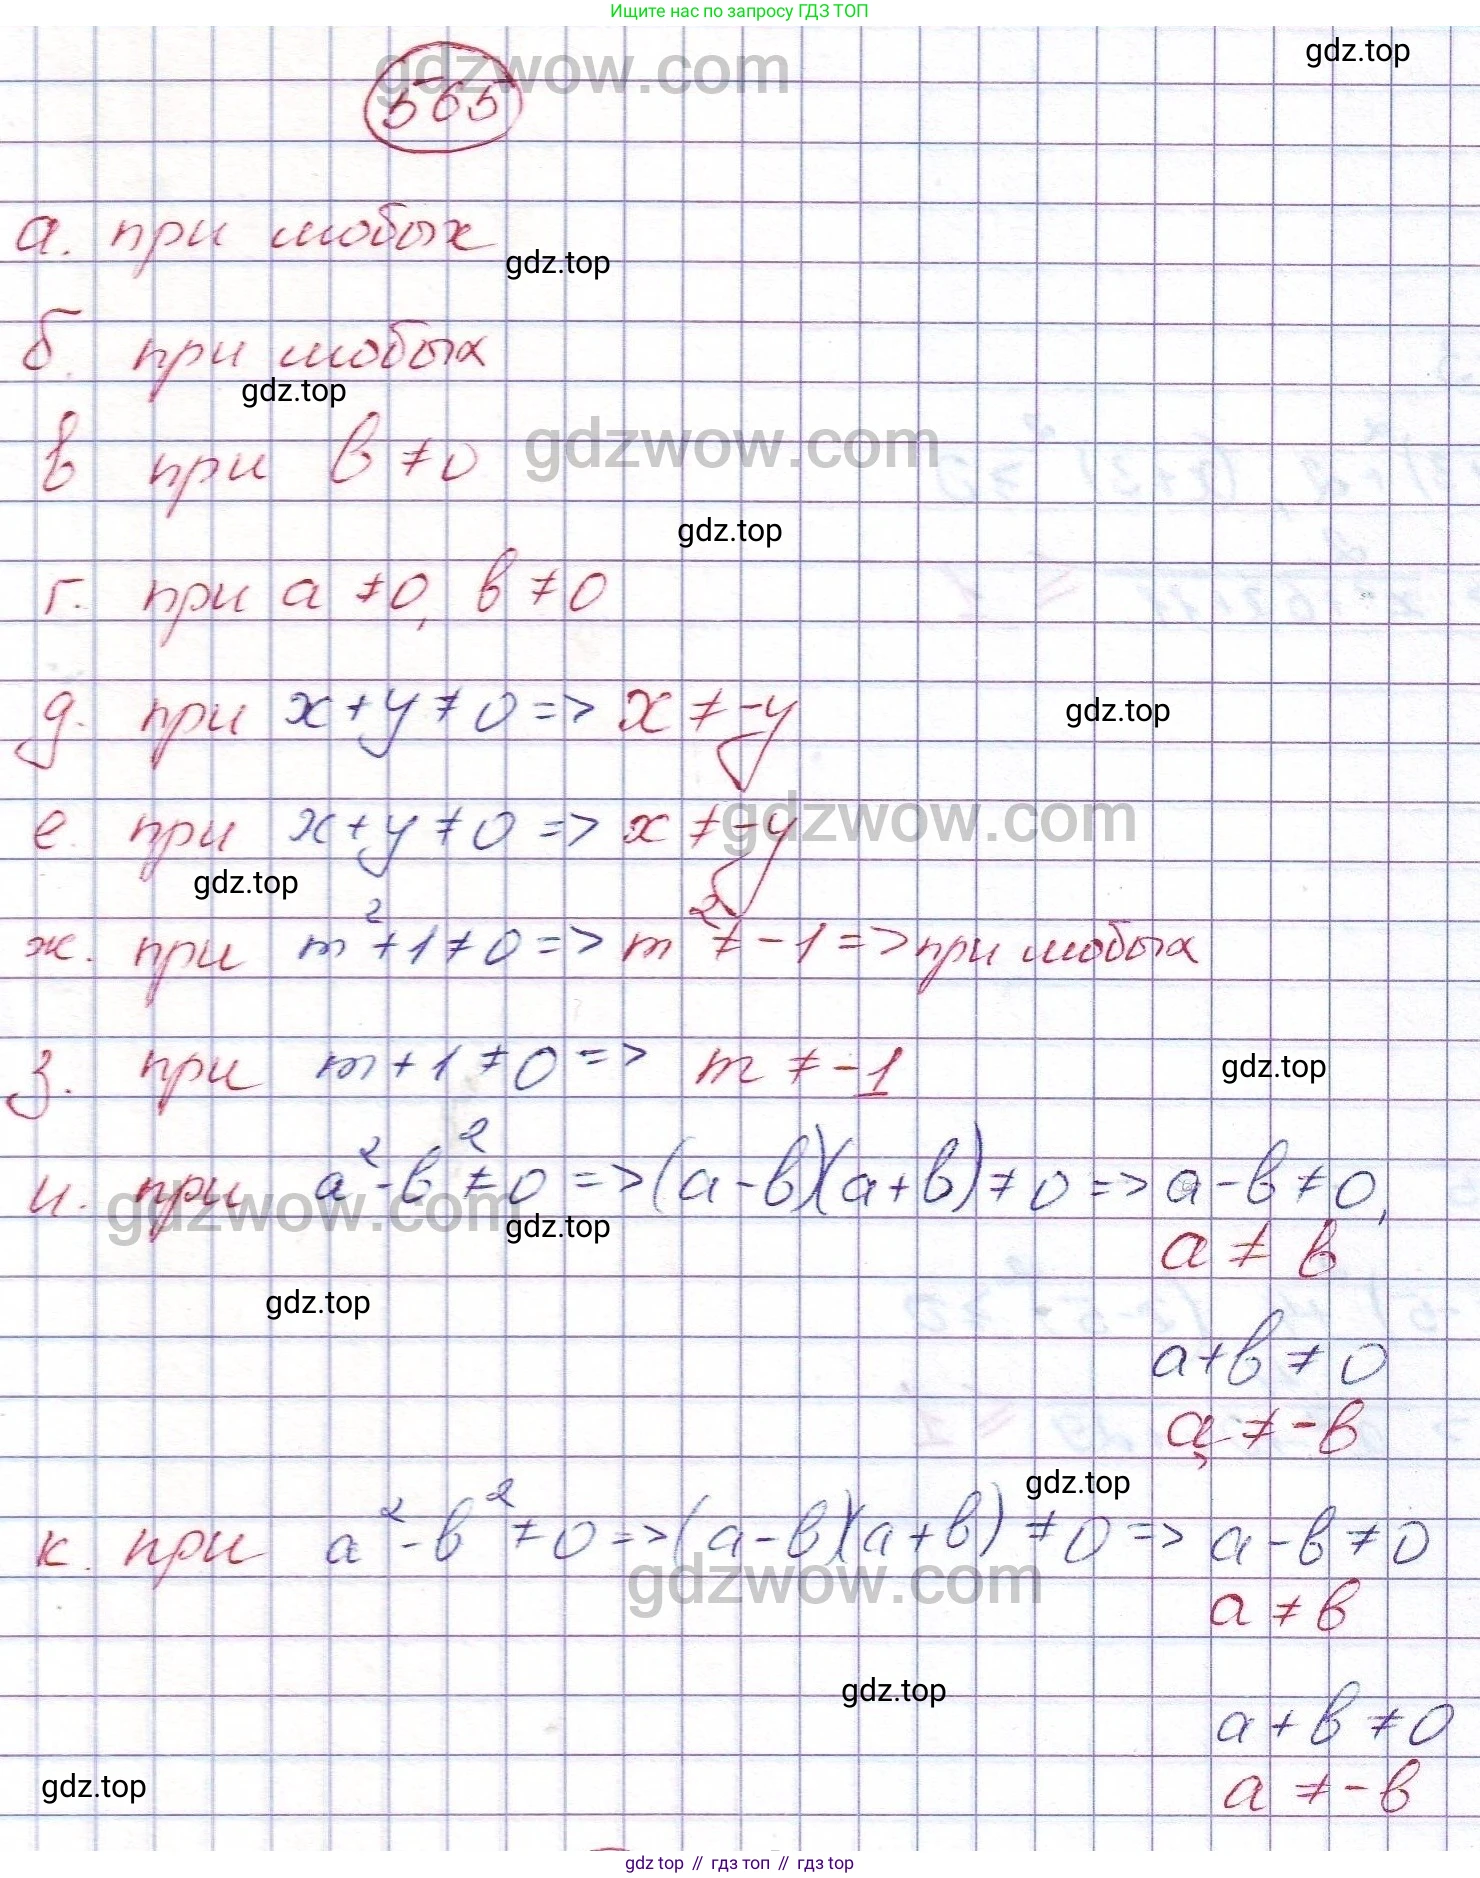 Ищите нас по запросу ГДЗ ТОП
gdzwow.com
gdz.top
565
а. при любых
gdz.top
б. при любых
gdz.top
gdzwow.com
в при b ≠ 0
gdz.top
г. при a ≠ 0, b ≠ 0
д. при x + y ≠ 0 => x ≠ -y
gdz.top
gdzwow.com
е. при x + y ≠ 0 => x ≠ -y
gdz.top
ж. при m² + 1 ≠ 0 => m² ≠ -1 => при любых
з. при m + 1 ≠ 0 => m ≠ -1
gdz.top
и. при a² - b² ≠ 0 => (a - b)(a + b) ≠ 0 => a - b ≠ 0,
gdzwow.com
gdz.top
a ≠ b
gdz.top
a + b ≠ 0
a ≠ -b
gdz.top
к. при a² - b² ≠ 0 => (a - b)(a + b) ≠ 0 => a - b ≠ 0
gdzwow.com
a ≠ b
gdz.top
a + b ≠ 0
gdz.top
a ≠ -b
gdz top // гдз топ // гдз top